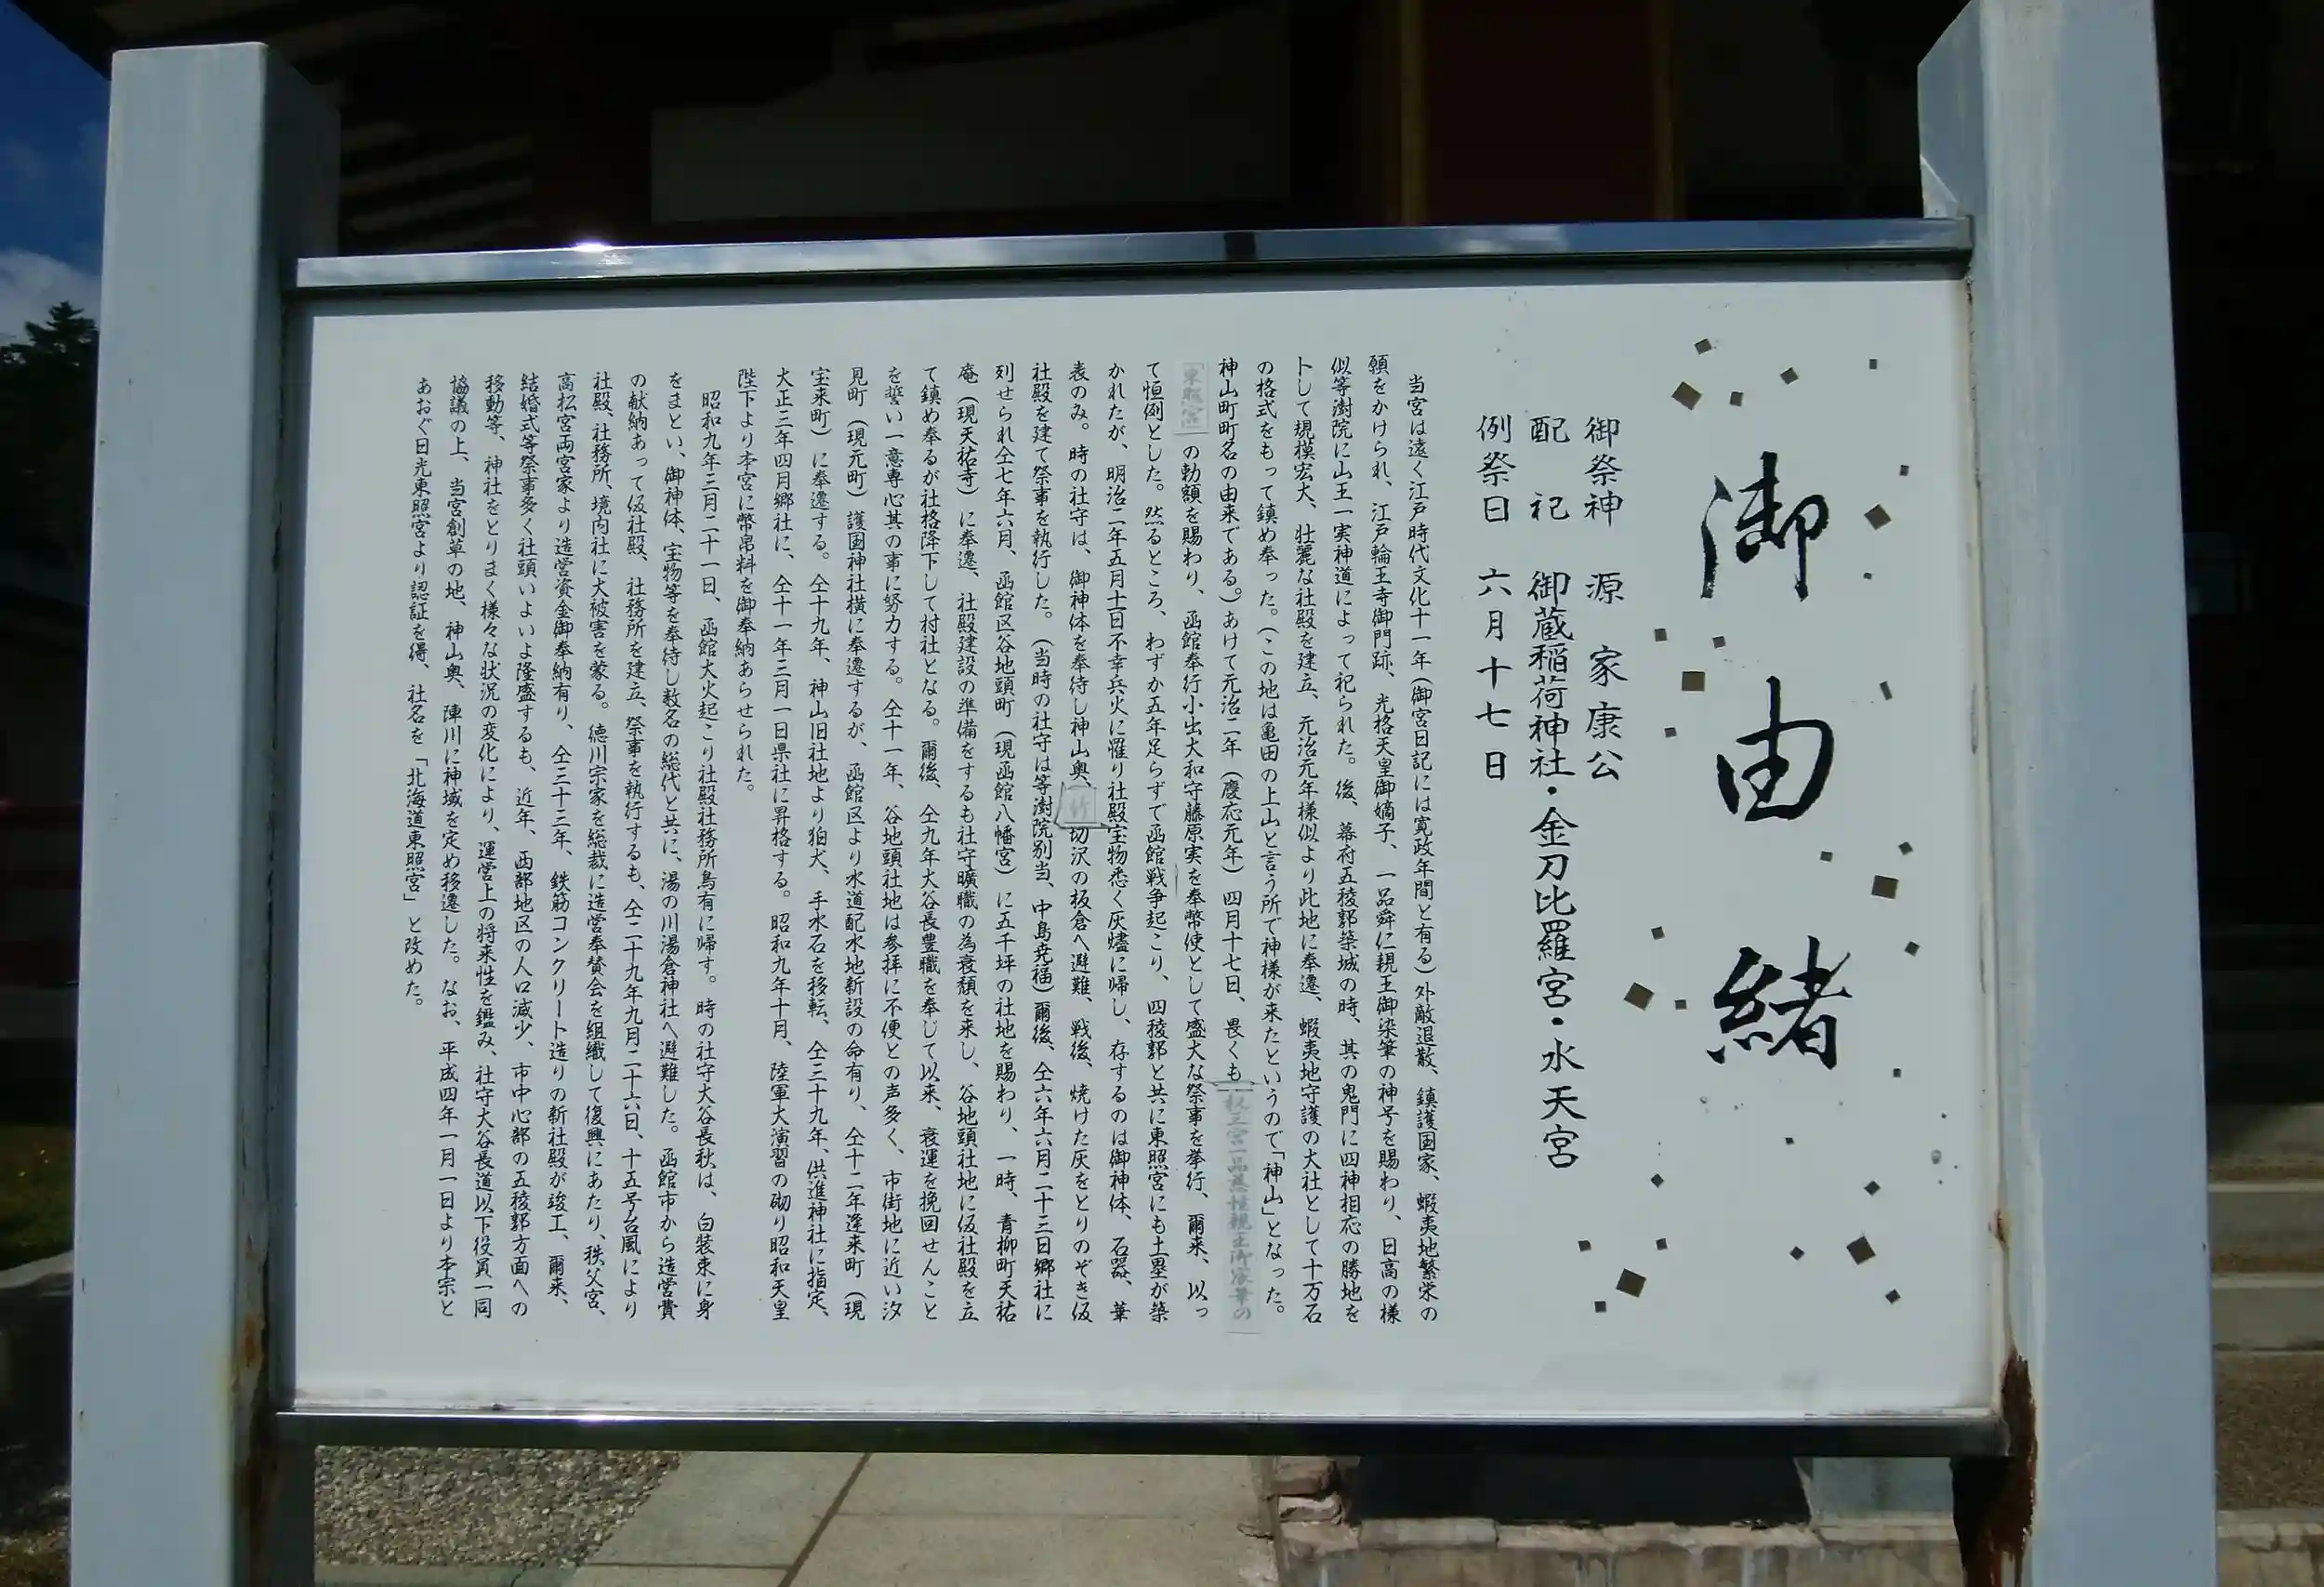 御由緒
御祭神　源　家康公
配　祀　御蔵稲荷神社・金刀比羅宮・水天宮
例祭日　六月十七日
当宮は遠く江戸時代文化十一年（御宮日記には寛政年間と有る）外敵退散、鎮護国家、蝦夷地繁栄の
願をかけられ、江戸輪王寺御門跡、光格天皇御嫡子、一品舜仁親王御染筆の神号を賜わり、日高の様
似等澍院に山王一実神道によって祀られた。後、幕府五稜郭築城の時、其の鬼門に四神相応の勝地を
トして規模宏大、壮麗な社殿を建立、元治元年様似より此地に奉遷、蝦夷地守護の大社として十万石
の格式をもって鎮め奉った。（この地は亀田の上山と言う所で神様が来たというので「神山」となった。
神山町町名の由来である。）あけて元治二年（慶応元年）四月十七日、畏くも 宮一品慈性親王御宸筆の
東照宮の勅額を賜わり、函館奉行小出大和守藤原実を奉幣使として盛大な祭事を挙行、爾来、以っ
て恒例とした。然るところ、わずか五年足らずで函館戦争起こり、四稜郭と共に東照宮にも土塁が築
かれたが、明治二年五月十一日不幸兵火に罹り社殿宝物悉く灰燼に帰し、存するのは御神体、石器、華
表のみ。時の社守は、御神体を奉待し神山奥、竹切沢の板倉へ避難、戦後、焼けた灰をとりのぞき仮
社殿を建て祭事を執行した。（当時の社守は等澍院別当、中島尭福）爾後、仝六年六月二十三日郷社に
列せられ仝七年六月、函館区谷地頭町（現函館八幡宮）に五千坪の社地を賜わり、一時、青柳町天祐
庵（現天祐寺）に奉遷、社殿建設の準備をするも社守曠職の為衰頽を来し、谷地頭社地に仮社殿を立
て鎮め奉るが社格降下して村社となる。爾後、仝九年大谷長豊職を奉じて以来、衰運を挽回せんこと
を誓い一意専心其の事に努力する。仝十一年、谷地頭社地は参拝に不便との声多く、市街地に近い汐
見町（現元町）護国神社横に奉遷するが、函館区より水道配水地新設の命有り、仝十二年逢来町（現
宝来町）に奉遷する。仝十九年、神山旧社地より狛犬、手水石を移転、仝三十九年、供進神社に指定、
大正三年四月郷社に、仝十一年三月一日県社に昇格する。昭和九年十月、陸軍大演習の砌り昭和天皇
陛下より本宮に幣帛料を御奉納あらせられた。
昭和九年三月二十一日、函館大火起こり社殿社務所烏有に帰す。時の社守大谷長秋は、白装束に身
をまとい、御神体、宝物等を奉待し数名の総代と共に、湯の川湯倉神社へ避難した。函館市から造営費
の献納あって仮社殿、社務所を建立、祭事を執行するも、仝二十九年九月二十六日、十五号台風により
社殿、社務所、境内社に大被害を蒙る。徳川宗家を総裁に造営奉賛会を組織して復興にあたり、秩父宮、
高松宮両宮家より造営資金御奉納有り、仝三十三年、鉄筋コンクリート造りの新社殿が竣工、爾来、
結婚式等祭事多く社頭いよいよ隆盛するも、近年、西部地区の人口減少、市中心部の五稜郭方面への
移動等、神社をとりまく様々な状況の変化により、運営上の将来性を鑑み、社守大谷長道以下役員一同
協議の上、当宮創草の地、神山奥、陣川に神域を定め移遷した。なお、平成四年一月一日より本宗と
あおぐ日光東照宮より認証を得、社名を「北海道東照宮」と改めた。